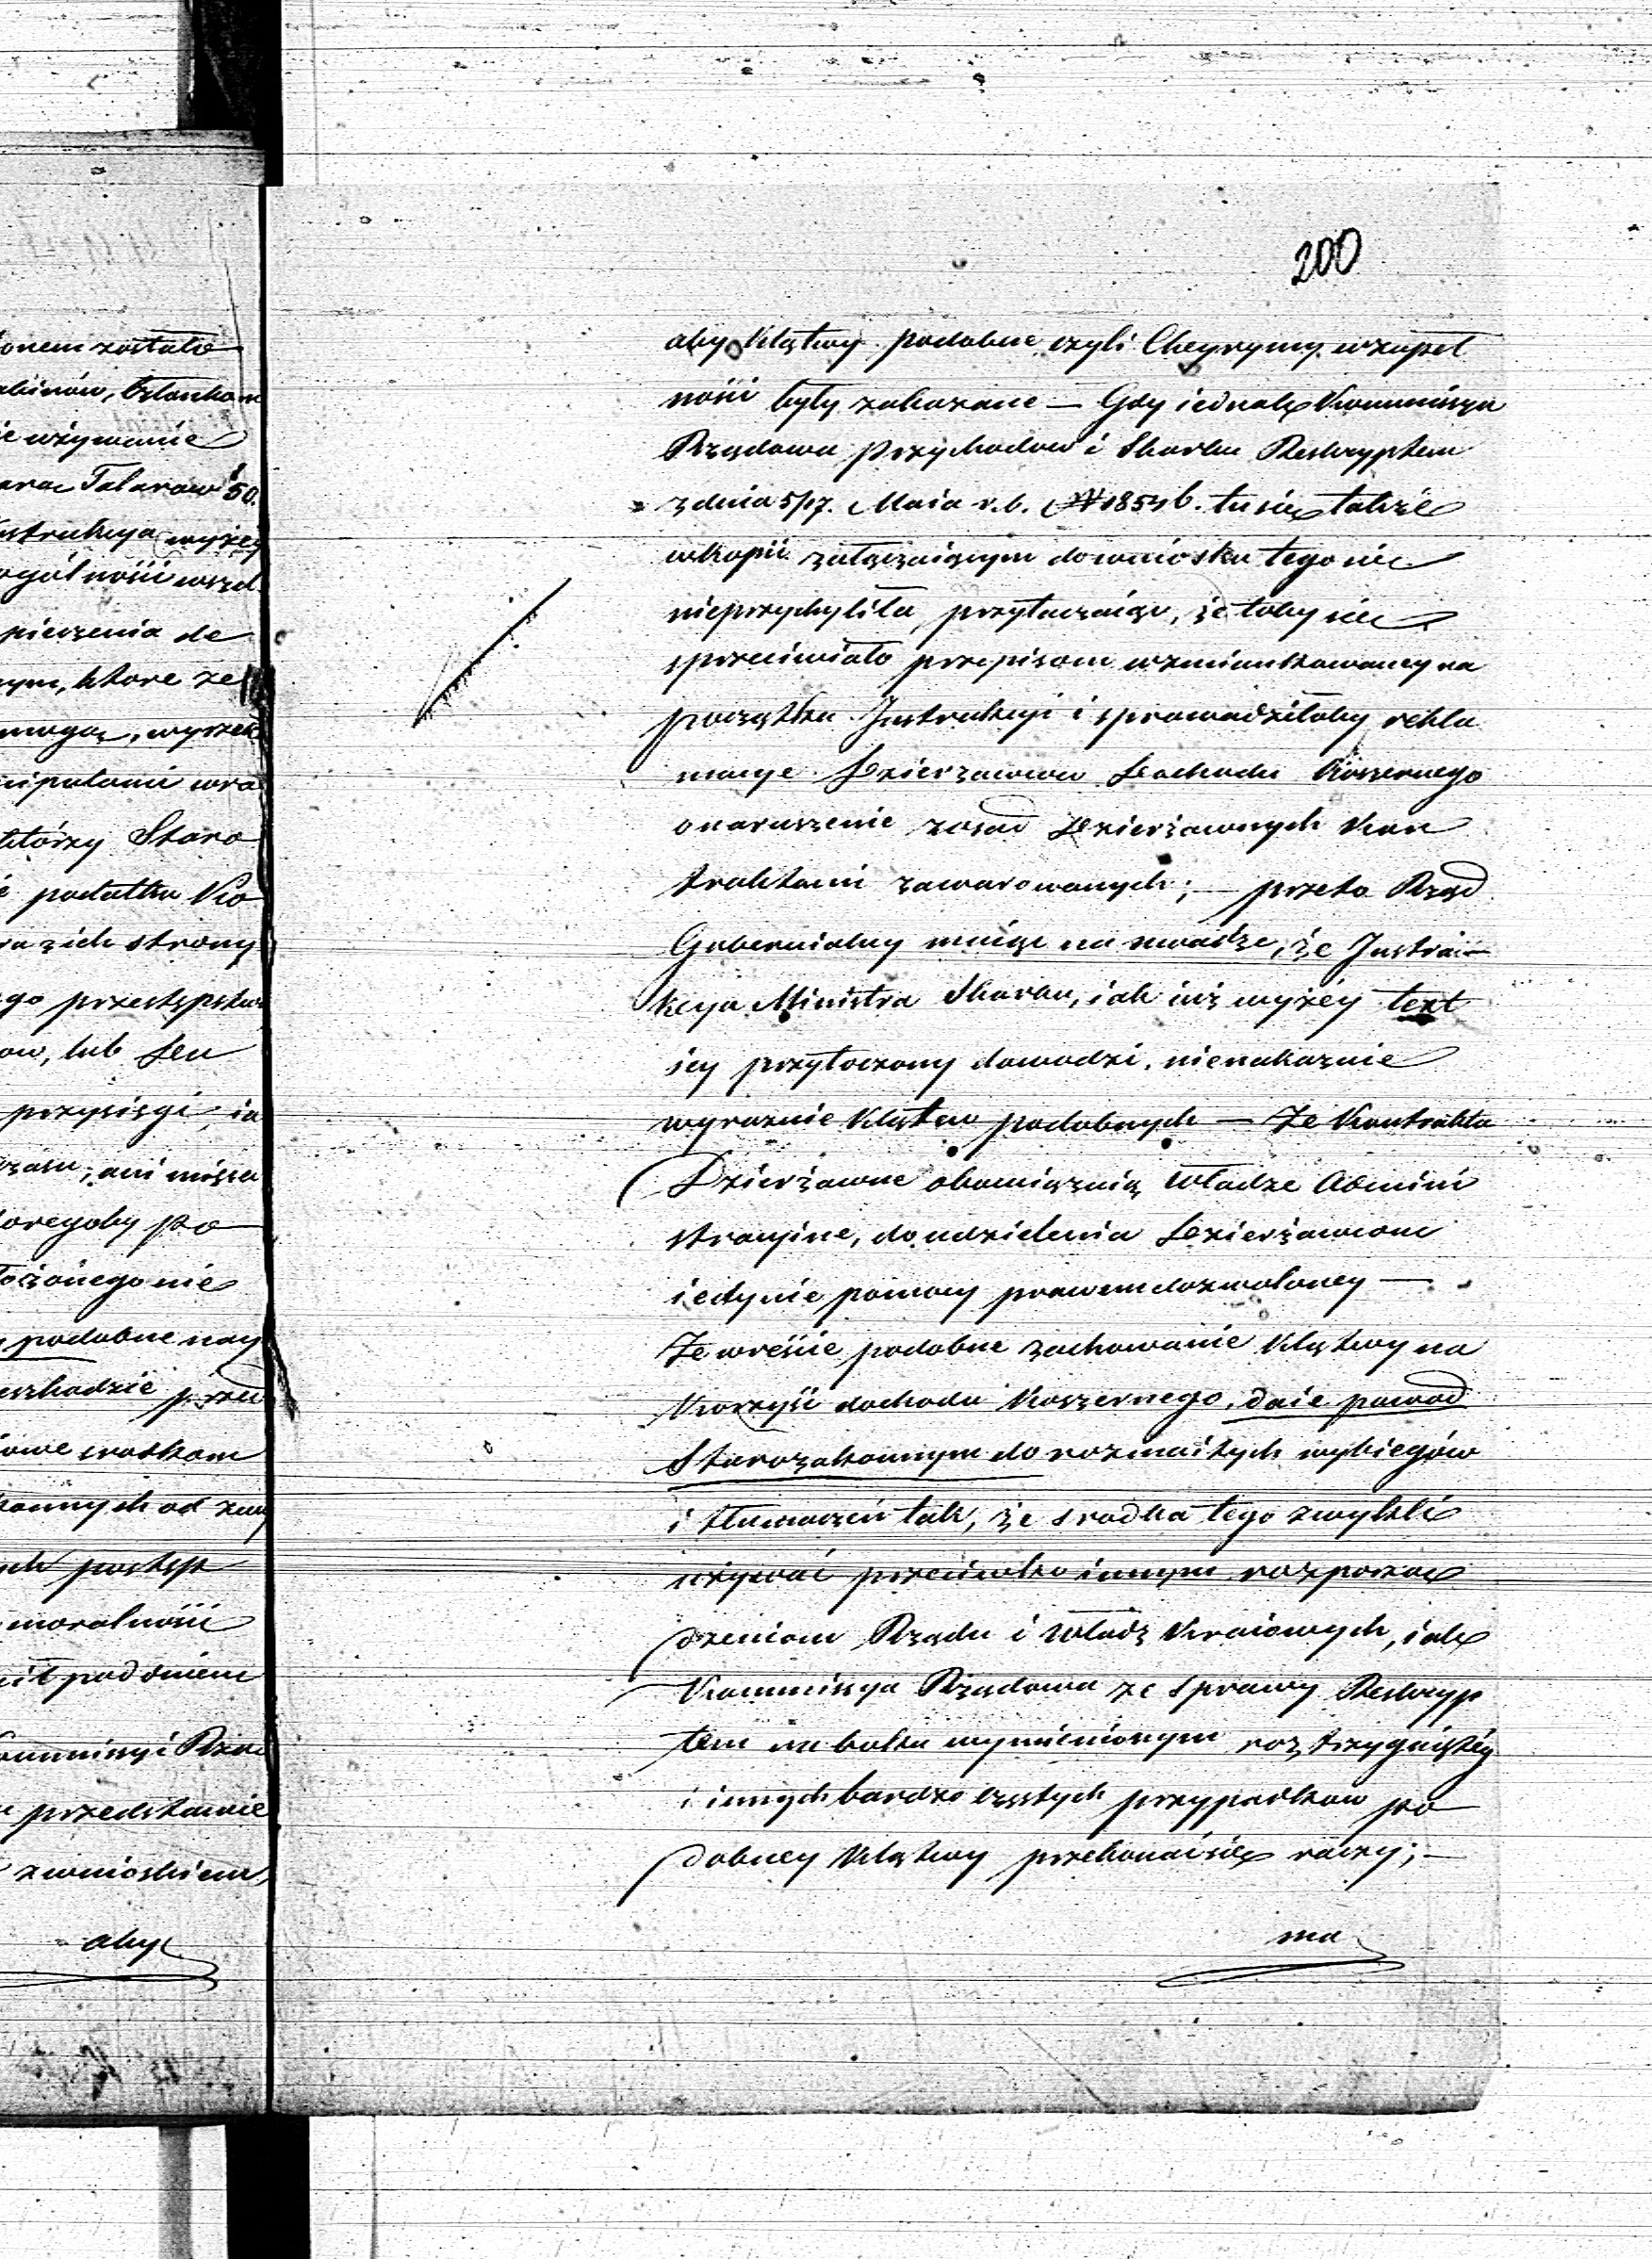 onem zostało
abinów, Członkom
ie używanie
Talarow 50.
Instrukcya wyżey
ogólności wszel
pieczenia do
nym, które ze
mogą, wyrzek
którzy Staro
podatku Ko
ra z ich strony
ego przestępstwa
ow, lub
przysięgi, ia
czasu, ani mieysca
oregoby po
łożónego nie
podobne nay
eszkodzie przed
zannych od zu
ch postęp
moralności
pod dniem
Kommissyi Rzą
przedstawie
z wnioskiem,
aby
200
aby Klątwy podobne czyli Cheyrymy w zupeł
ności były zakazane — Gdy iednak Kommissya
Rządowa Przychodow i Skarbu Reskryptem
z dnia 5/17. Maia r. b. N 18546. tu się także
w kopii załączaiącym do wniosku tego nie
nieprzychyliła, przytaczaiąc, że toby się
sprzeciwiało przepisom wzmiankowaney na
początku Instrukcyi i sprowadziłoby rekla
macye Dzierzawców Dochodu Koszernego
o naruszenie zasad Dzierżawnych Kon
traktami zawarowanych; — przeto Rząd
Gubernialny maiąc na uwadze, że Instru-
kcya Ministra Skarbu, iak iuż wyżéy text
iey przytoczony dowodzi, nienakazuie
wyraznie Klątew podobnych — Że Kontrakta
Dzierżawne obowiązuią Władze Admini
stracyine, do udzielenia Dzierżawcom
iedynie pomocy prawem dozwoloney —
Że wreście podobne zachowanie Klątwy na
Korzyść dochodu Koszernego, daie powod
Starozakonnym do rozmaitych wybiegów
i tłumaczeń tak, że srodka tego zwykli
używać przeciwko innym rozporzą
dzeniom Rządu i Władz Kraiowych, iak
Kommissya Rządowa ze sprawy Reskryp
tem na boku wymienionym rozstrzygniętéy
i innych bardzo częstych przypadkow po
dobney Klątwy przekonać się raczy; —
ma